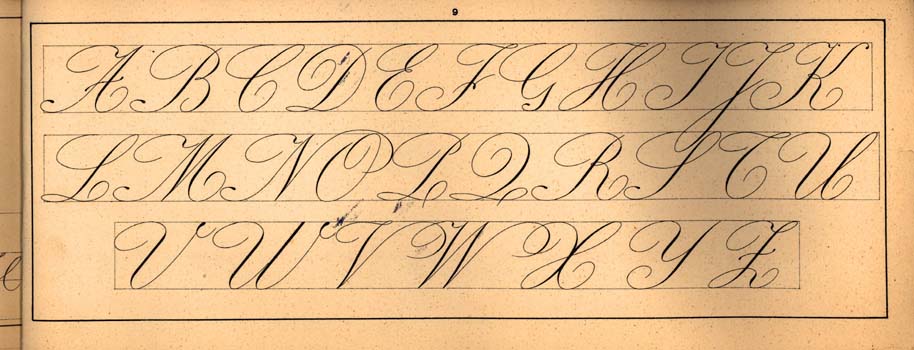 9
A B C D E F G H I J K
L M N O P Q R S T U
V W V W X Y Z